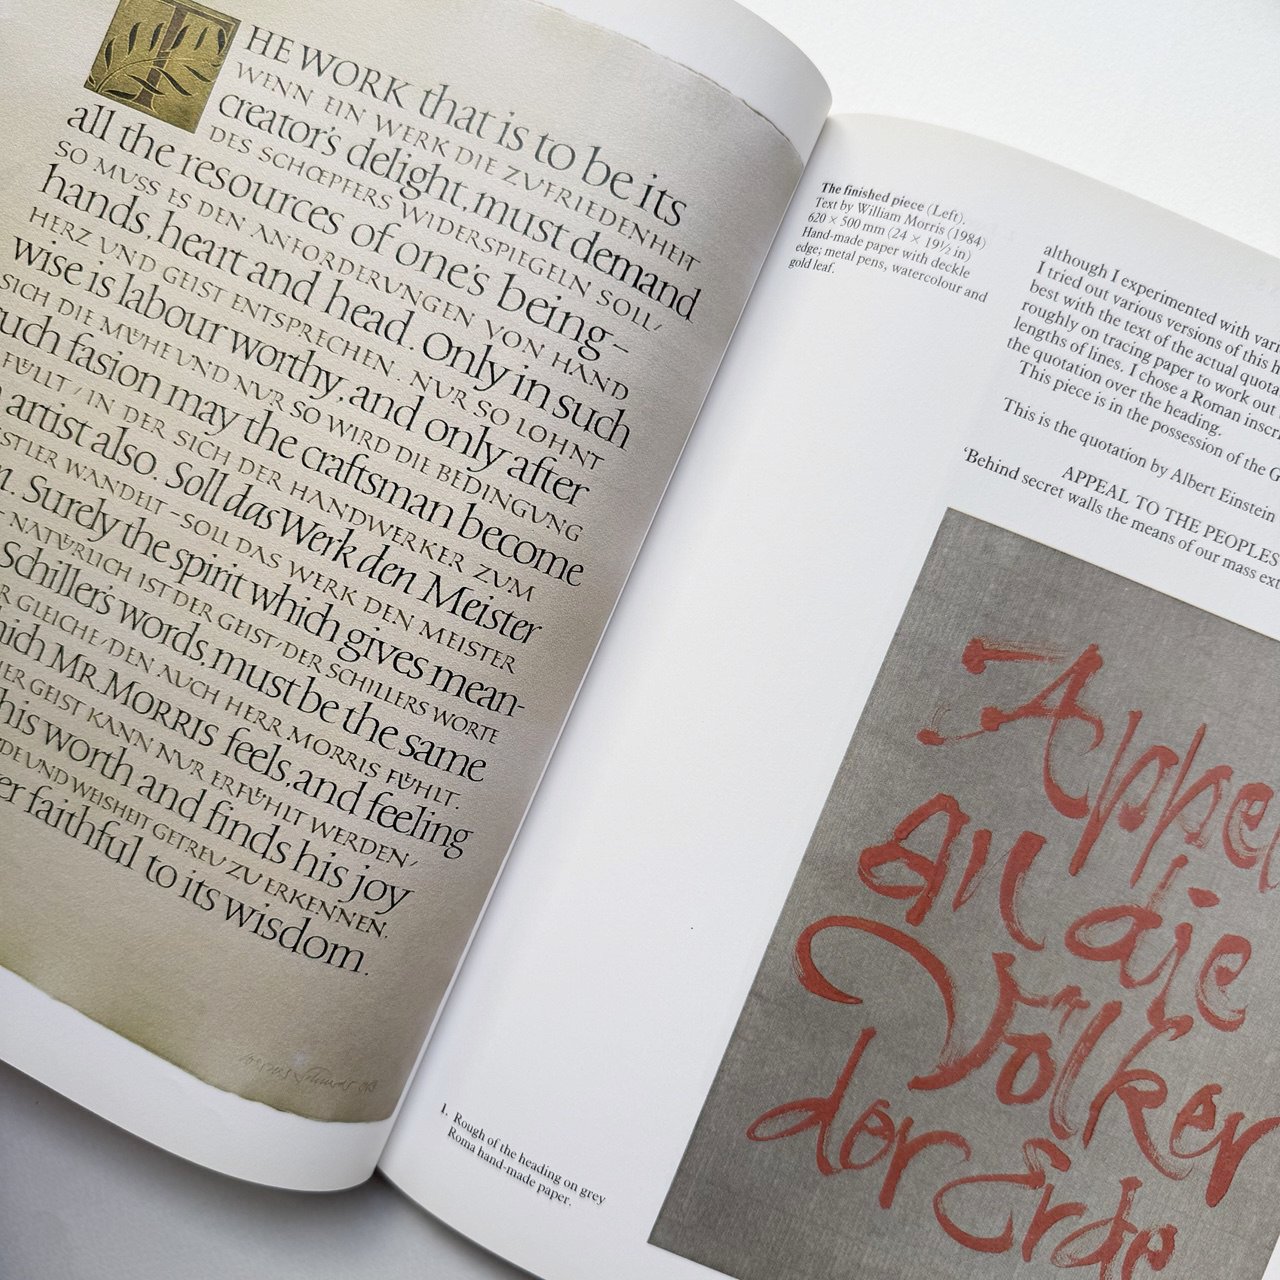 THE WORK that is to be its
WENN EIN WERK DIE ZUFRIEDENHEIT
creator's delight, must demand
DES SCHŒPFERS WIDERSPIEGELN SOLL/
all the resources of one's being –
SO MUSS ES DEN ANFORDERUNGEN VON HAND
hands, heart and head. Only in such
HERZ UND GEIST ENTSPRECHEN. NUR SO LOHNT
wise is labour worthy, and only after
SICH DIE MÜHE UND NUR SO WIRD DIE BEDINGUNG
such fasion may the craftsman become
FÜLLT / IN DER SICH DER HANDWERKER ZUM
artist also. Soll das Werk den Meister
STLER WANDELT – SOLL DAS WERK DEN MEISTER
n. Surely the spirit which gives mean-
NATÜRLICH IST DER GEIST / DER SCHILLERS WORTE
Schiller's words, must be the same
R GLEICHE / DEN AUCH HERR MORRIS FÜHLT.
hich MR. MORRIS feels, and feeling
ER GEIST KANN NUR ERFÜHLT WERDEN /
his worth and finds his joy
DE UND WEISHEIT GETREU ZU ERKENNEN.
er faithful to its wisdom.
The finished piece (Left).
Text by William Morris (1984)
620 × 500 mm (24 × 19½ in)
Hand-made paper with deckle
edge; metal pens, watercolour and
gold leaf.
although I experimented with vari
I tried out various versions of this h
best with the text of the actual quota
roughly on tracing paper to work out
lengths of lines. I chose a Roman inscri
the quotation over the heading.
This piece is in the possession of the G
This is the quotation by Albert Einstein
APPEAL TO THE PEOPLES
'Behind secret walls the means of our mass ext
Appel
an die
Völker
der Erde
1. Rough of the heading on grey
Roma hand-made paper.